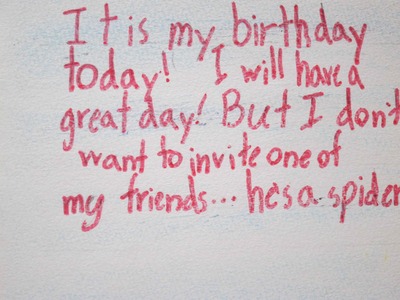 It is my birthday
today! I will have a
great day! But I don't
want to invite one of
my friends... he's a spider